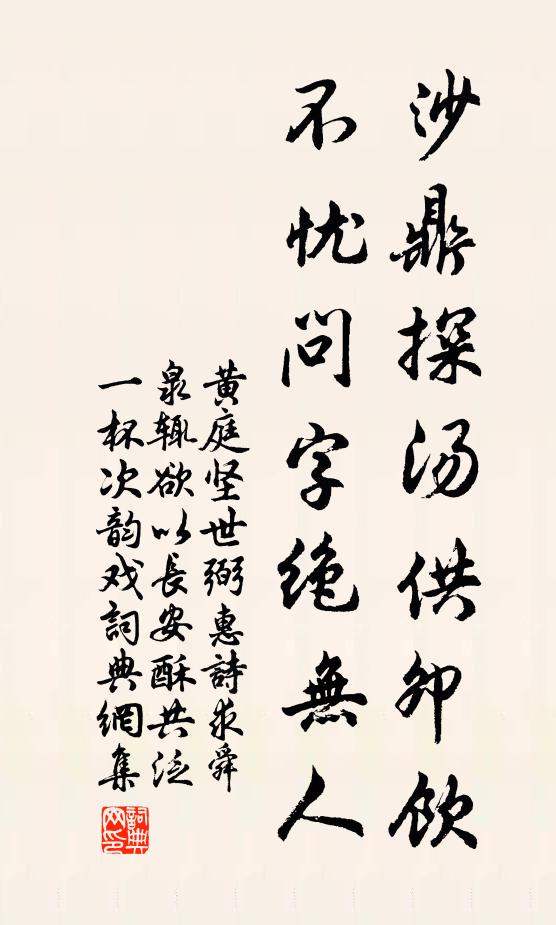 沙鼎探汤供卯饮
不忧问字绝無人
黄庭坚世弼惠詩求舜
泉辄欲以長安酥共泛
一杯次韵戏詞典網集
詞典
网印